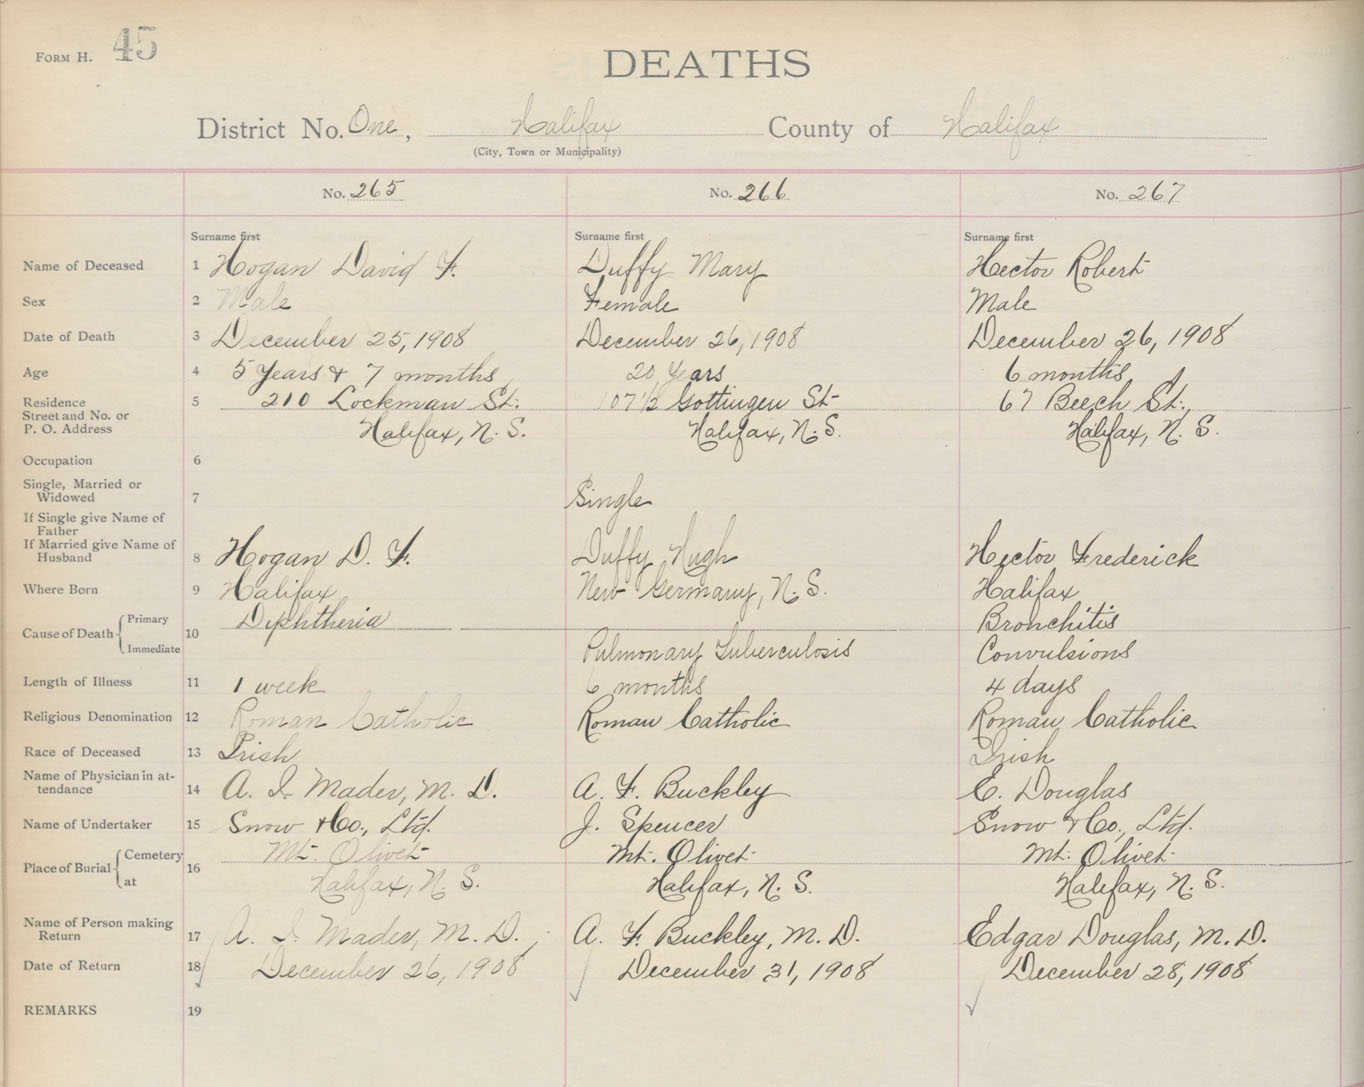 FORM H. 45
DEATHS
District No. One, Halifax County of Halifax
(City, Town or Municipality)
No. 265 No. 266 No. 267
Surname first Surname first Surname first
Name of Deceased 1 Hogan David F. Duffy Mary Hector Robert
Sex 2 Male Female Male
Date of Death 3 December 25, 1908 December 26, 1908 December 26, 1908
Age 4 5 Years & 7 months 20 Years 6 months
Residence 5 210 Lockman St. 107 1/2 Gottingen St 67 Beech St.,
Street and No. or
P. O. Address Halifax, N. S. Halifax, N. S. Halifax, N. S.
Occupation 6
Single, Married or
Widowed 7 Single
If Single give Name of
Father
If Married give Name of
Husband 8 Hogan D. F. Duffy Hugh Hector Frederick
Where Born 9 Halifax New Germany, N. S. Halifax
Cause of Death Primary 10 Diphtheria Bronchitis
Immediate Pulmonary Tuberculosis Convulsions
Length of Illness 11 1 week 6 months 4 days
Religious Denomination 12 Roman Catholic Roman Catholic Roman Catholic
Race of Deceased 13 Irish Irish
Name of Physician in at-
tendance 14 A. I. Mader, M. D. A. F. Buckley E. Douglas
Name of Undertaker 15 Snow & Co., Ltd. J. Spencer Snow & Co., Ltd.
Place of Burial Cemetery 16 Mt. Olivet Mt. Olivet Mt. Olivet
at Halifax, N. S. Halifax, N. S. Halifax, N. S.
Name of Person making
Return 17 A. I. Mader, M. D. A. F. Buckley, M. D. Edgar Douglas, M. D.
Date of Return 18 December 26, 1908 December 31, 1908 December 28, 1908
REMARKS 19